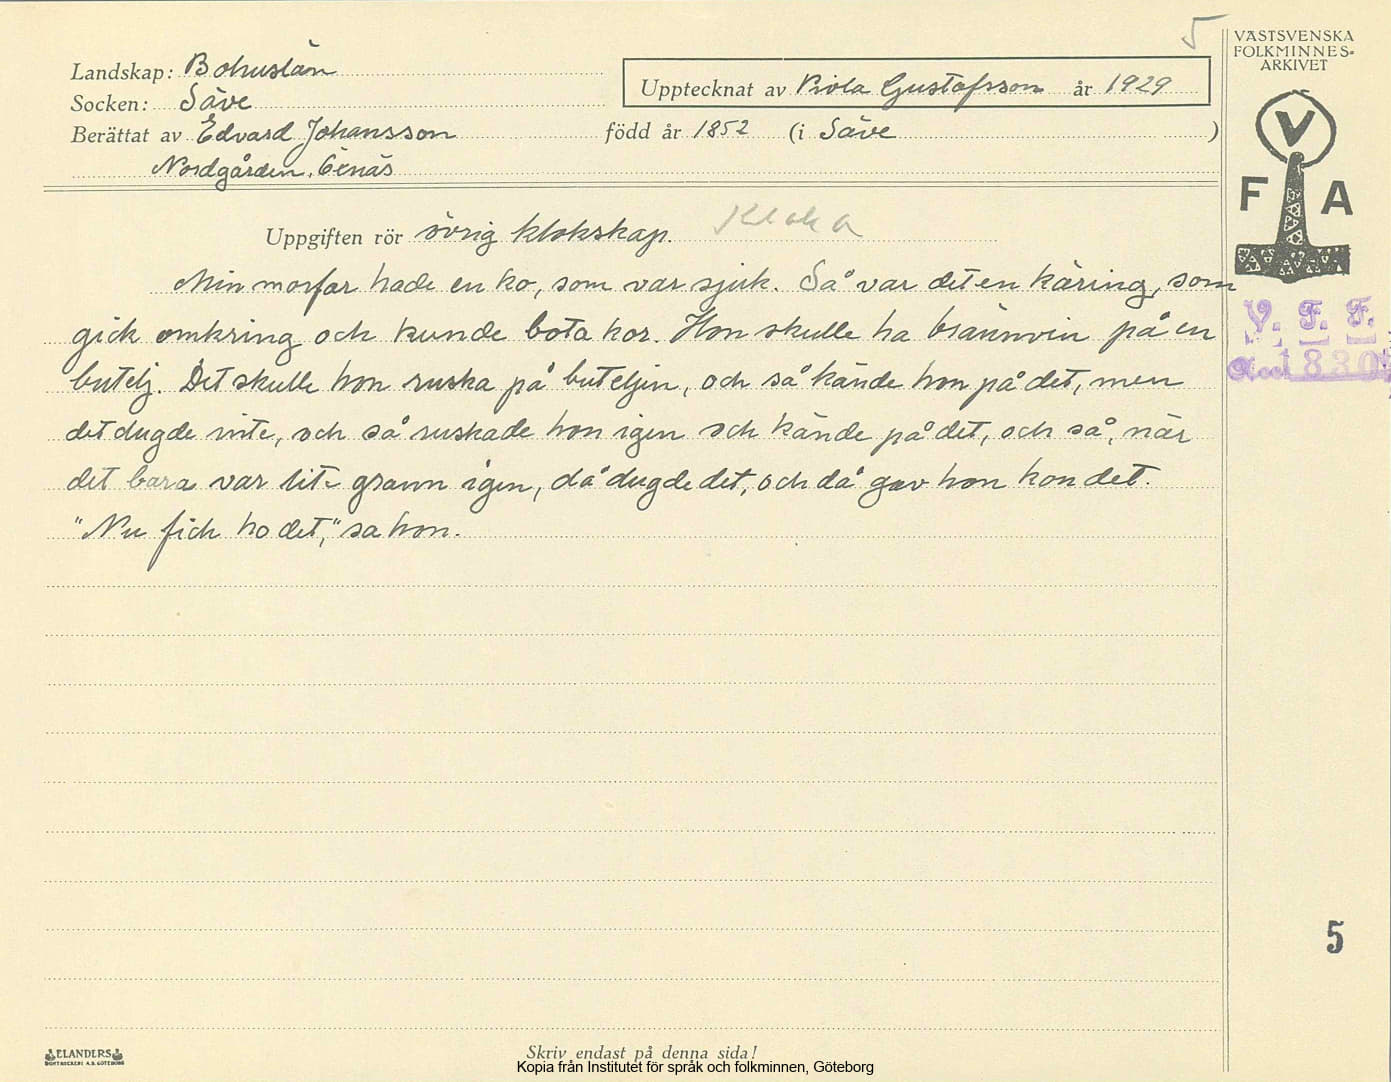 5
VÄSTSVENSKA
FOLKMINNES-
ARKIVET
Landskap: Bohuslän
Socken: Säve
Upptecknat av Viola Gustafsson år 1929
Berättat av Edvard Johansson född år 1852 (i Säve )
Nordgården, Öxnäs
V
F A
Uppgiften rör övrig klokskap. Kloka
Min morfar hade en ko, som var sjuk. Så var det en käring, som
gick omkring och kunde bota kor. Hon skulle ha brännvin på en
butelj. Det skulle hon ruska på buteljen, och så kände hon på det, men
det dugde inte, och så ruskade hon igen och kände på det, och så, när
det bara var lite grann igen, då dugde det, och då gav hon kon det.
"Nu fick ho det," sa hon.
V. F. F.
1830
5
ELANDERS
BOKTRYCKERI A.B. GÖTEBORG
Skriv endast på denna sida!
Kopia från Institutet för språk och folkminnen, Göteborg